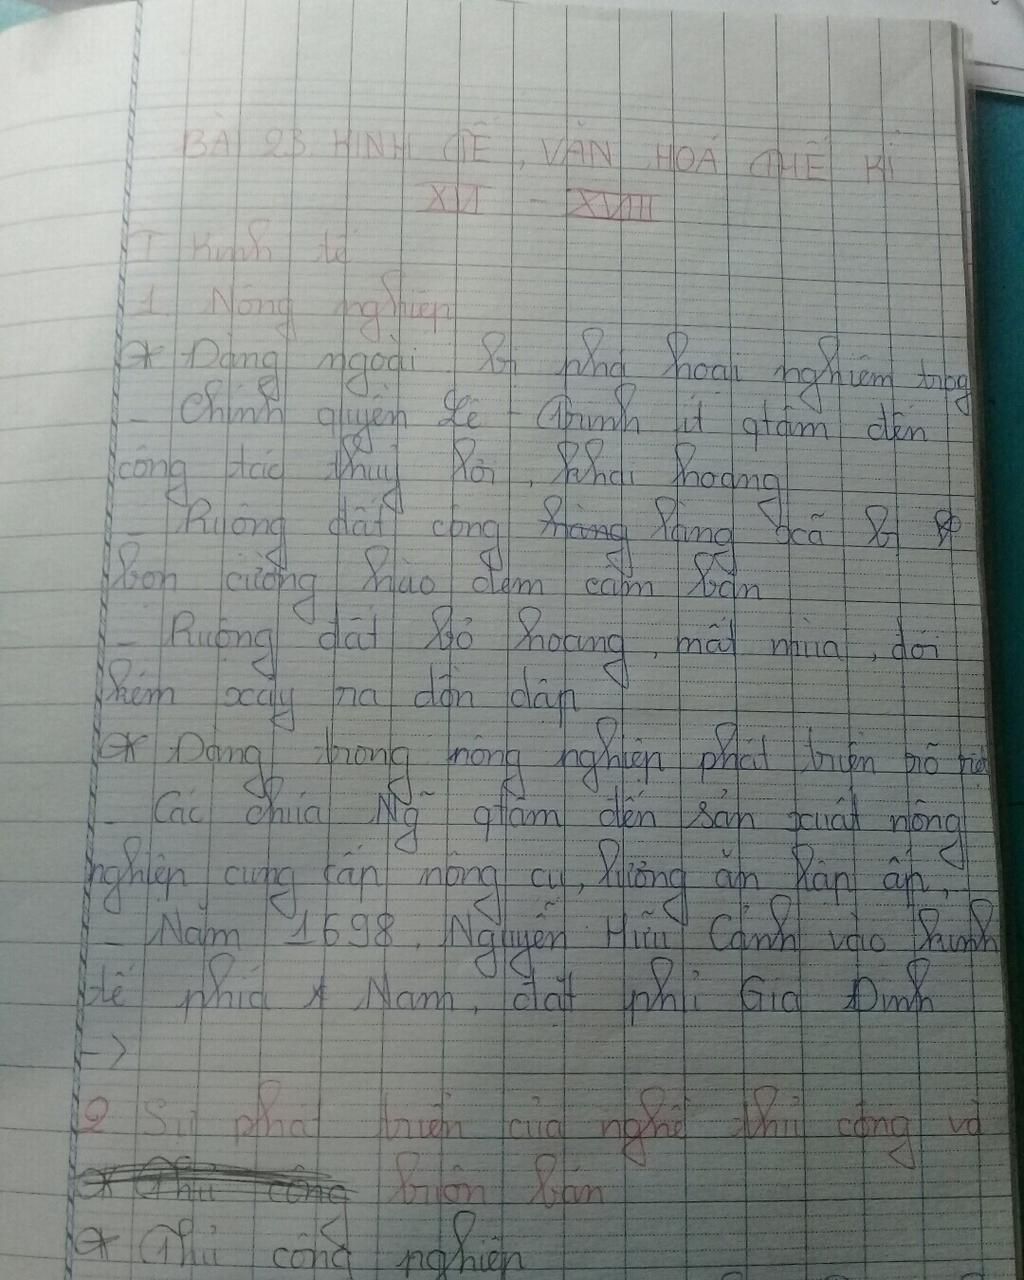 BÀI 23 KINH TẾ, VĂN HOÁ THẾ KỈ
XVI - XVIII
I Kinh tế
1. Nông nghiệp
* Đàng ngoài bị phá hoại nghiêm trọng
- Chính quyền Lê - Trịnh ít qtâm đến
công tác thuỷ lợi, khai hoang
- Ruộng đất công làng xã bị
bọn cường hào đem cầm bán
- Ruộng đất bỏ hoang, mất mùa, đói
kém xảy ra dồn dập
* Đàng trong nông nghiệp phát triển rõ rệt
- Các chúa Ng~ qtâm đến sản xuất nông
nghiệp cung cấp nông cụ, lương ăn lập ấp,
- Năm 1698, Nguyễn Hữu Cảnh vào kinh
tế phía Nam, đặt phủ Gia Định
->
2 Sự phát triển của nghề thủ công và
buôn bán
* Thủ công nghiệp